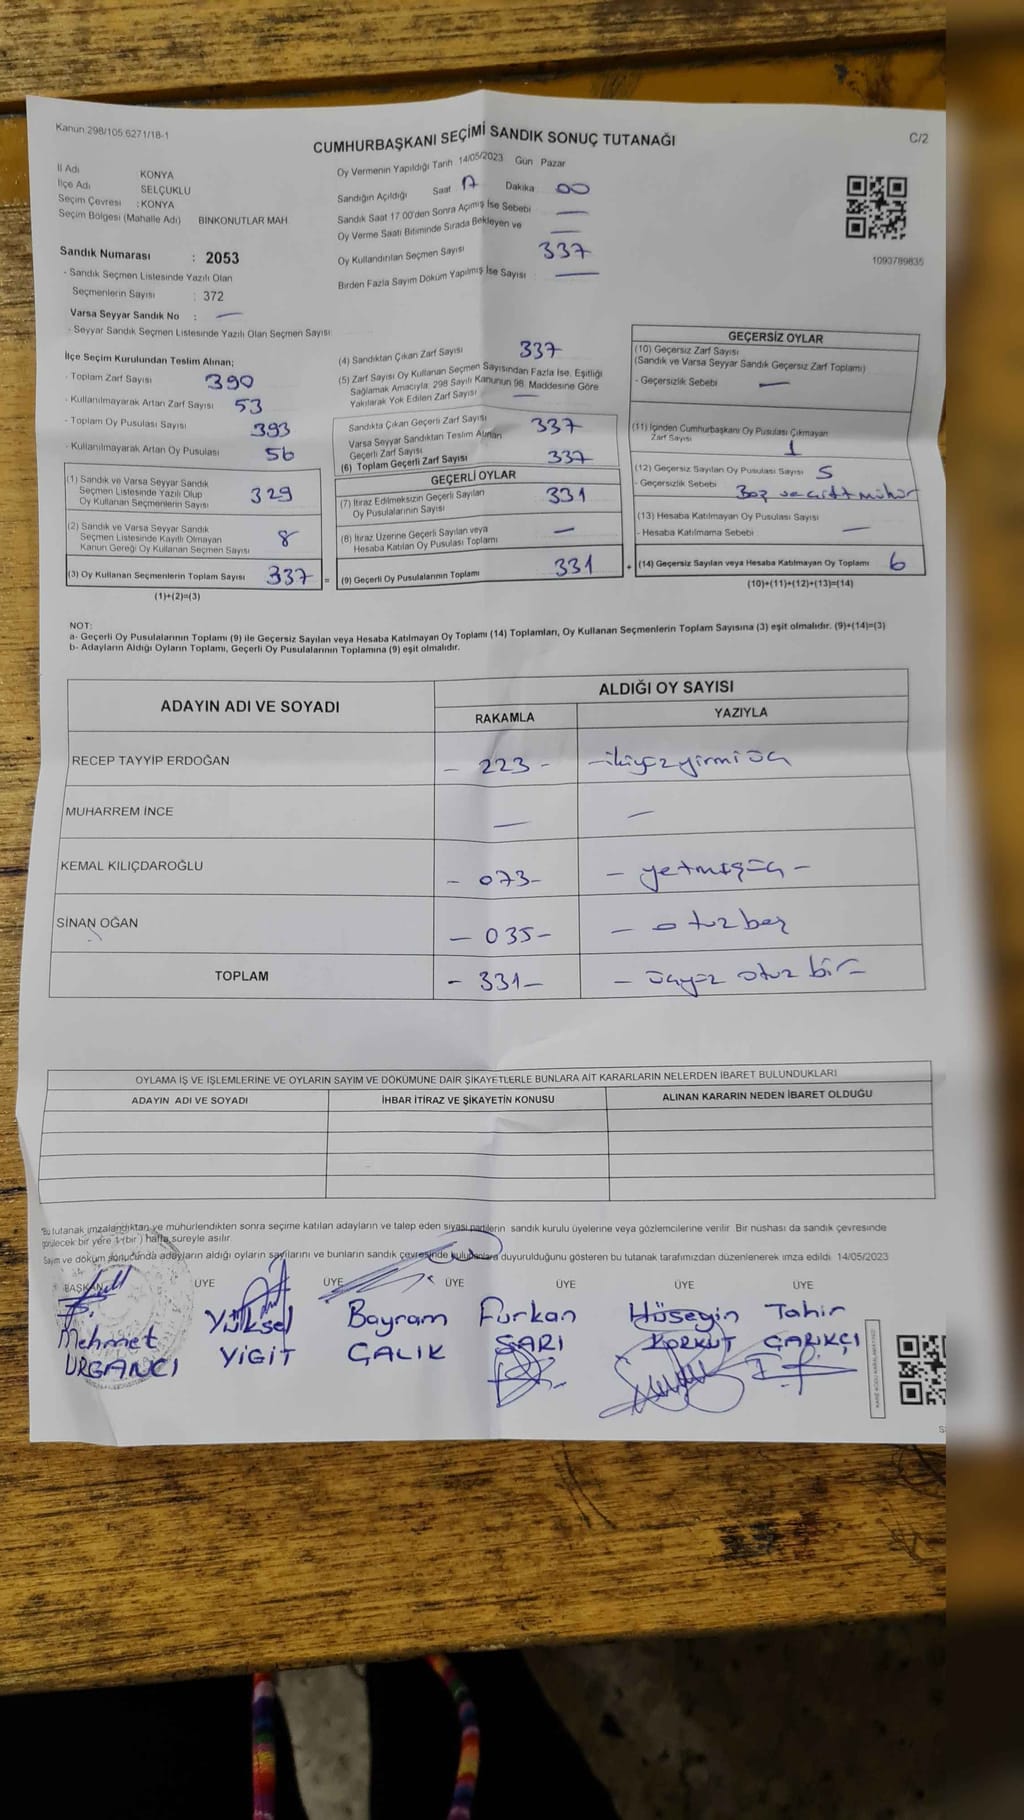 Kanun:298/105;6271/18-1
CUMHURBAŞKANI SEÇİMİ SANDIK SONUÇ TUTANAĞI
C/2
İl Adı KONYA
İlçe Adı SELÇUKLU
Seçim Çevresi : KONYA
Seçim Bölgesi (Mahalle Adı) BİNKONUTLAR MAH.
Sandık Numarası : 2053
- Sandık Seçmen Listesinde Yazılı Olan
Seçmenlerin Sayısı : 372
Varsa Seyyar Sandık No : —
- Seyyar Sandık Seçmen Listesinde Yazılı Olan Seçmen Sayısı:
Oy Vermenin Yapıldığı Tarih 14/05/2023 Gün Pazar
Sandığın Açıldığı Saat 17 Dakika 00
Sandık Saat 17.00'den Sonra Açımış İse Sebebi —
Oy Verme Saati Bitiminde Sırada Bekleyen ve —
Oy Kullandırılan Seçmen Sayısı 337
Birden Fazla Sayım Döküm Yapılmış İse Sayısı —
1093789835
İlçe Seçim Kurulundan Teslim Alınan;
- Toplam Zarf Sayısı 390
- Kullanılmayarak Artan Zarf Sayısı 53
- Toplam Oy Pusulası Sayısı 393
- Kullanılmayarak Artan Oy Pusulası 56
(1) Sandık ve Varsa Seyyar Sandık
Seçmen Listesinde Yazılı Olup
Oy Kullanan Seçmenlerin Sayısı 329
(2) Sandık ve Varsa Seyyar Sandık
Seçmen Listesinde Kayıtlı Olmayan
Kanun Gereği Oy Kullanan Seçmen Sayısı 8
(3) Oy Kullanan Seçmenlerin Toplam Sayısı 337 =
(1)+(2)=(3)
(4) Sandıktan Çıkan Zarf Sayısı 337
(5) Zarf Sayısı Oy Kullanan Seçmen Sayısından Fazla İse, Eşitliği
Sağlamak Amacıyla; 298 Sayılı Kanunun 98. Maddesine Göre
Yakılarak Yok Edilen Zarf Sayısı —
Sandıkta Çıkan Geçerli Zarf Sayısı 337
Varsa Seyyar Sandıktan Teslim Alınan
Geçerli Zarf Sayısı
(6) Toplam Geçerli Zarf Sayısı 337
GEÇERLİ OYLAR
(7) İtiraz Edilmeksizin Geçerli Sayılan
Oy Pusulalarının Sayısı 331
(8) İtiraz Üzerine Geçerli Sayılan veya
Hesaba Katılan Oy Pusulası Toplamı —
(9) Geçerli Oy Pusulalarının Toplamı 331 +
GEÇERSİZ OYLAR
(10) Geçersiz Zarf Sayısı
(Sandık ve Varsa Seyyar Sandık Geçersiz Zarf Toplamı)
- Geçersizlik Sebebi —
(11) İçinden Cumhurbaşkanı Oy Pusulası Çıkmayan
Zarf Sayısı 1
(12) Geçersiz Sayılan Oy Pusulası Sayısı 5
- Geçersizlik Sebebi Boş ve çift mühür
(13) Hesaba Katılmayan Oy Pusulası Sayısı
- Hesaba Katılmama Sebebi —
(14) Geçersiz Sayılan veya Hesaba Katılmayan Oy Toplamı 6
(10)+(11)+(12)+(13)=(14)
NOT:
a- Geçerli Oy Pusulalarının Toplamı (9) ile Geçersiz Sayılan veya Hesaba Katılmayan Oy Toplamı (14) Toplamları, Oy Kullanan Seçmenlerin Toplam Sayısına (3) eşit olmalıdır. (9)+(14)=(3)
b- Adayların Aldığı Oyların Toplamı, Geçerli Oy Pusulalarının Toplamına (9) eşit olmalıdır.
ADAYIN ADI VE SOYADI
ALDIĞI OY SAYISI
RAKAMLA YAZIYLA
RECEP TAYYİP ERDOĞAN - 223 - - ikiyüzyirmi üç
MUHARREM İNCE — —
KEMAL KILIÇDAROĞLU - 073 - - yetmişüç -
SİNAN OĞAN - 035 - - otuzbeş
TOPLAM - 331 - - üçyüz otuz bir -
OYLAMA İŞ VE İŞLEMLERİNE VE OYLARIN SAYIM VE DÖKÜMÜNE DAİR ŞİKAYETLERLE BUNLARA AİT KARARLARIN NELERDEN İBARET BULUNDUKLARI
ADAYIN ADI VE SOYADI İHBAR İTİRAZ VE ŞİKAYETİN KONUSU ALINAN KARARIN NEDEN İBARET OLDUĞU
"Bu tutanak imzalandıktan ve mühürlendikten sonra seçime katılan adayların ve talep eden siyasi partilerin sandık kurulu üyelerine veya gözlemcilerine verilir. Bir nüshası da sandık çevresinde
görülecek bir yere 1 (bir) hafta süreyle asılır.
Sayım ve döküm sonucunda adayların aldığı oyların sayılarını ve bunların sandık çevresinde bulunanlara duyurulduğunu gösteren bu tutanak tarafımızdan düzenlenerek imza edildi. 14/05/2023
BAŞKAN ÜYE ÜYE ÜYE ÜYE ÜYE ÜYE
Mehmet Yüksel Bayram Furkan Hüseyin Tahir
URGANCI YİĞİT ÇALIK SARI KORKUT ÇARIKÇI